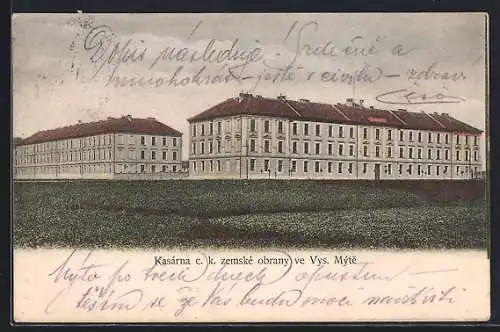 Dopis následuje. Srdečně a
mnohokrát – ještě v civilu – zdraví
Kasárna c. k. zemské obrany ve Vys. Mýtě
Mýto po třech dnech opustím –
těším se že Vás budu moci navštíviti